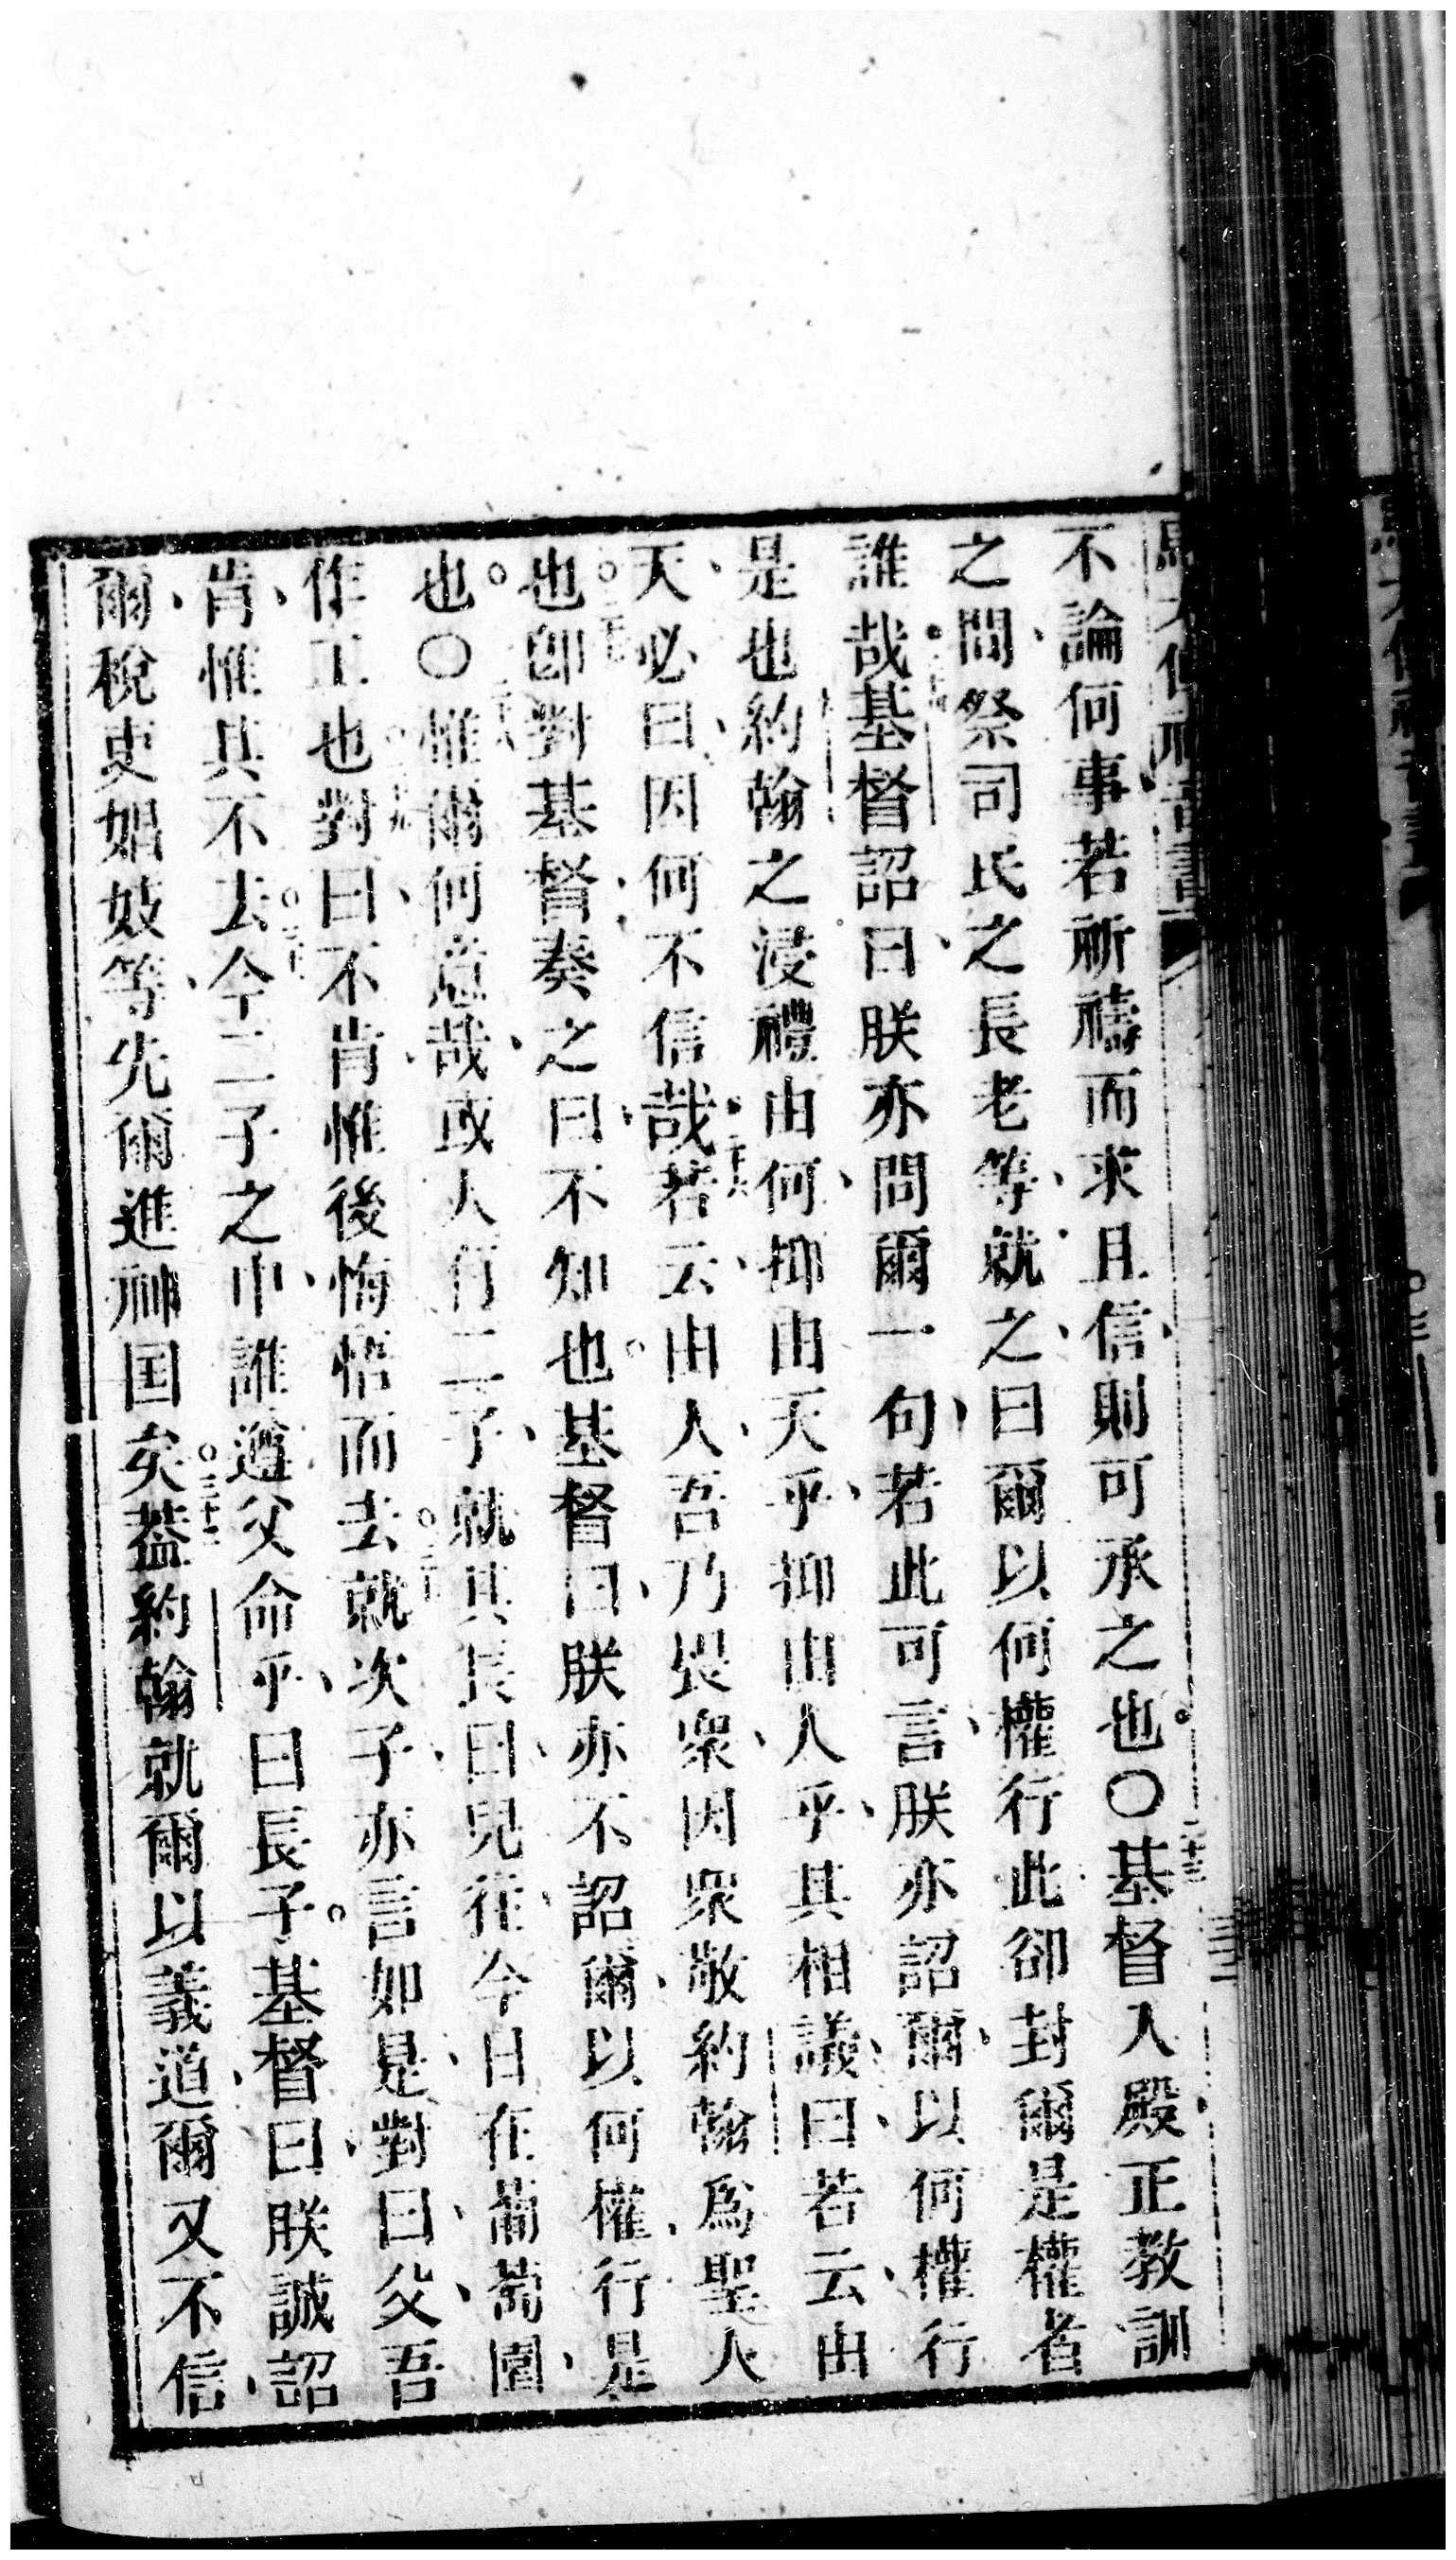 不論何事若祈禱而求且信、則可承之也。〇二十三基督入殿正教訓
之間、祭司氏之長老等、就之、曰爾以何權行此卻封爾是權者
誰哉。基督詔曰、朕亦問爾一句、若此可言、朕亦詔爾、以何權行
是也約翰之浸禮由何、抑由天乎、抑由人乎、其相議、曰、若云、由
天、必曰、因何不信哉。若云、由人、吾乃畏衆、因衆敬約翰爲聖人
也。即對基督、奏之曰、不知也。基督曰、朕亦不詔爾、以何權、行是
也。〇惟爾何意哉、或人有二子、就其長曰、兒往、今日在葡萄園、
作工也對曰、不肯、惟後悔悟而去。就次子、亦言如是、對曰、父、吾
肯、惟其不去。今二子之中、誰遵父命乎、曰長子。基督曰、朕誠詔
爾、稅吏娼妓等、先爾進神国矣。三十二葢約翰就爾以義道、爾又不信、